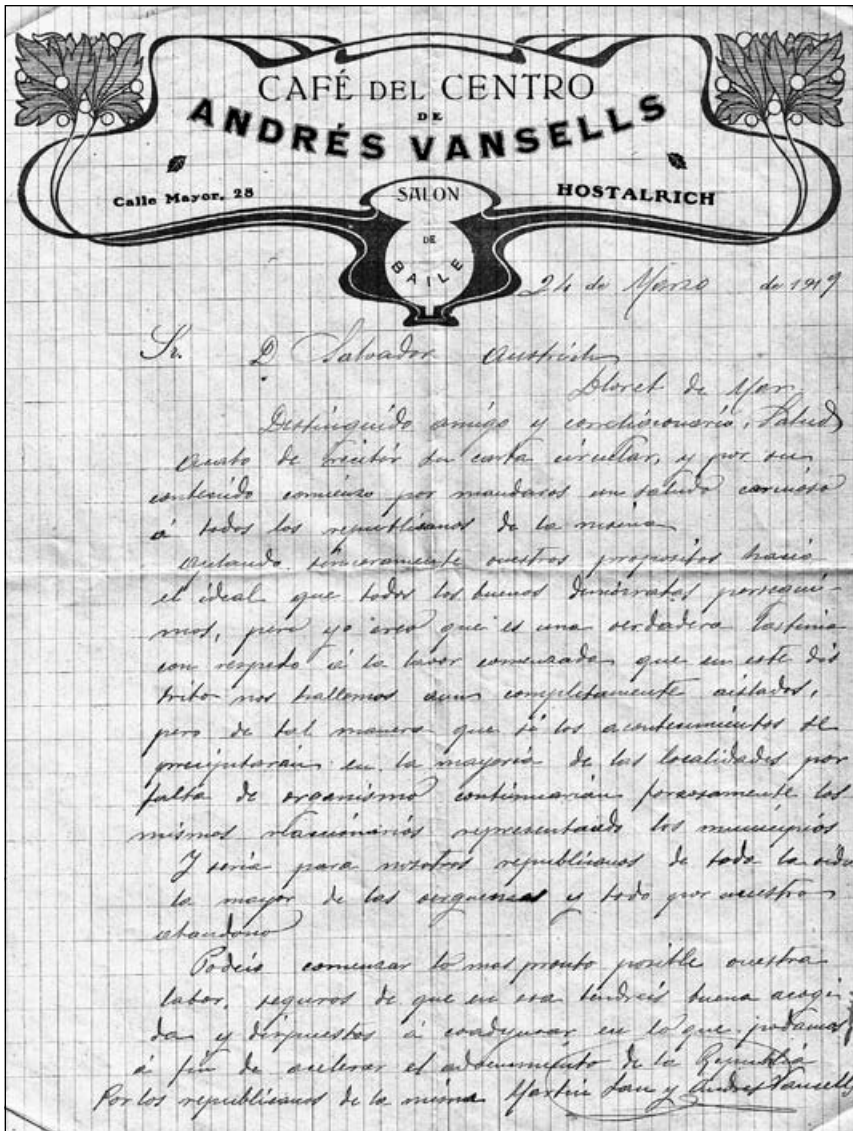 CAFÉ DEL CENTRO
DE
ANDRÉS VANSELLS
Calle Mayor, 28
SALON
DE
BAILE
HOSTALRICH
24 de Marzo de 1919
Sr. D Salvador
Lloret de Mar
Destinguido amigo y correticionario, Salud
Acabo de recibir su carta circular, y por su
contenido comienzo por mandaros un saludo cariñoso
á todos los republicanos de la misma
sinceramente vuestros propositos hacia
el ideal que todos los buenos demócratas persegui-
mos, pero yo creo que es una verdadera lastima
con respeto á la lavor comenzada que en este dis
trito nos hallemos aun completamente aislados,
pero de tal manera que si los acontecimientos se
precipitarán en la mayoria de las localidades por
falta de organismo continuarian forzosamente los
mismos reaccionarios representando los municipios
Y seria para nosotros republicanos de toda la vida
la mayor de las verguenzas y todo por nuestro
abandono
Podeis comenzar lo mas pronto posible vuestra
labor, seguros de que en esa tendreis buena acogi-
da y dispuestos á coadyuvar en lo que podamos
á fin de acelerar el advenimiento de la Republica
Por los republicanos de la misma Martin y Andres Vansells